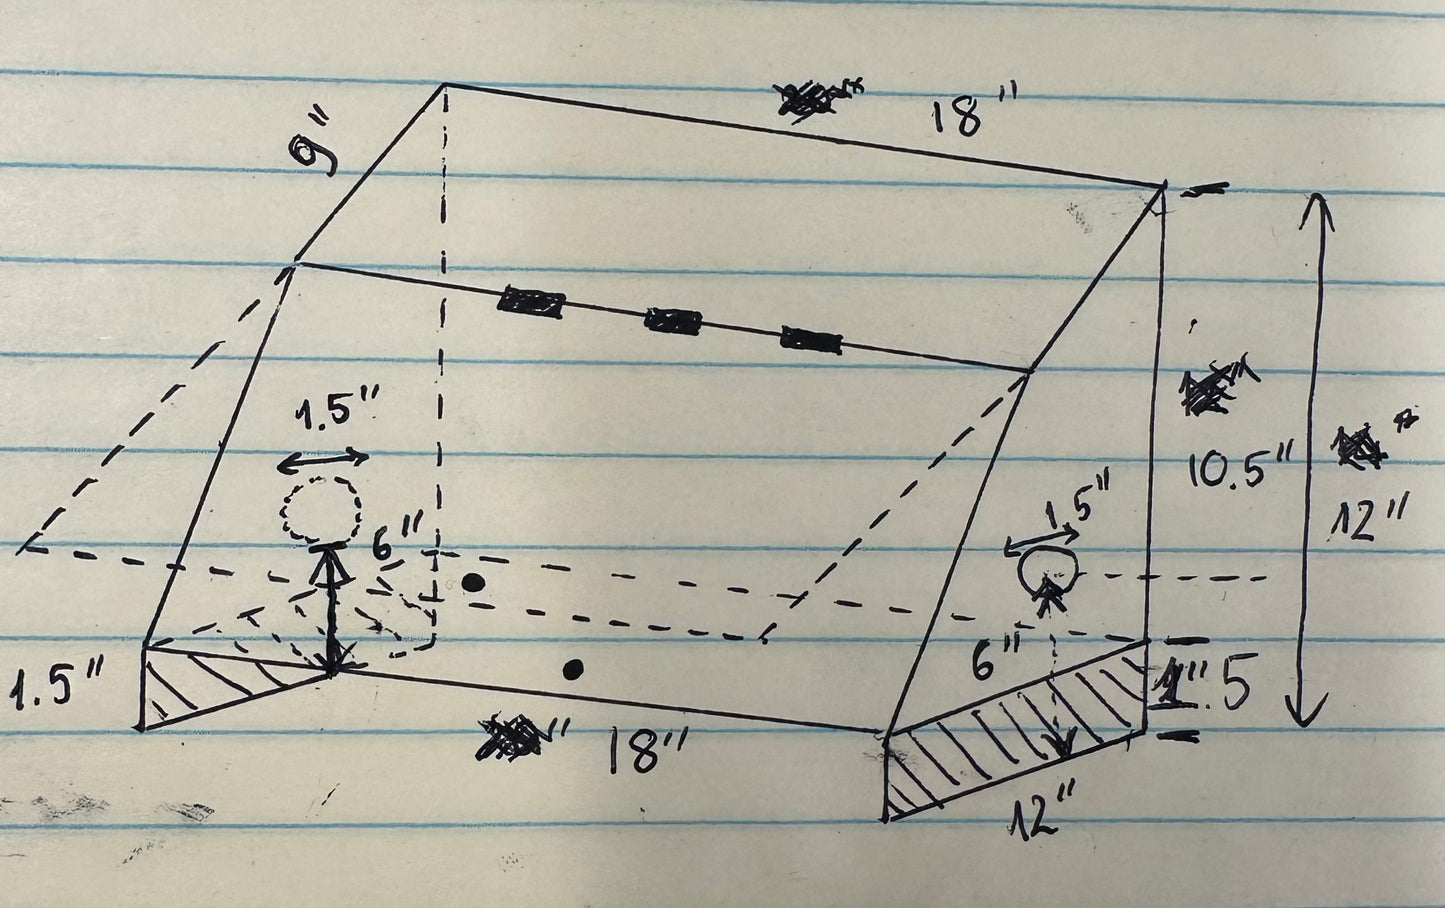 9"
18"
1.5"
10.5"
12"
1.5"
6"
6"
1.5"
1".5
18"
12"